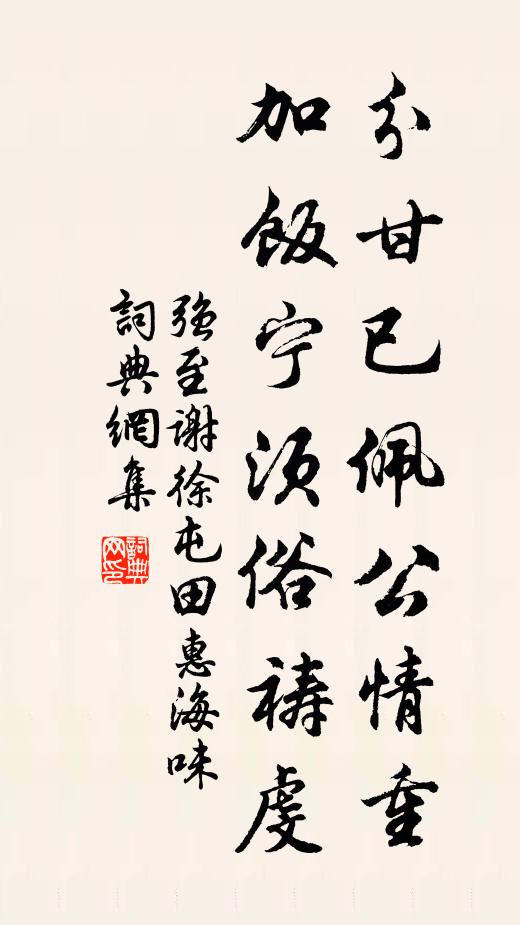 分甘已佩公情重
加飯宁須俗祷虔
强至谢徐屯田惠海味
詞典網集
詞典网印